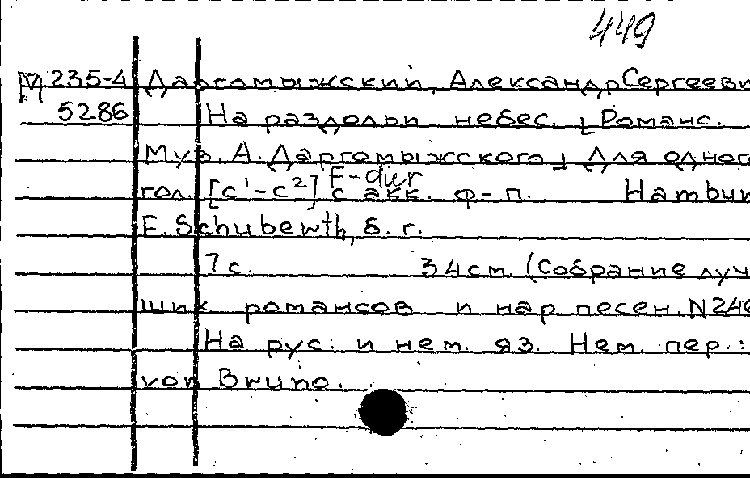 449
М 235-4 Даргомыжский, Александр Сергееви
5286 На раздольи небес. [Романс.
Муз. А. Даргомыжского] Для одног
F-dur
гол. [c¹-c²] с акк. ф-п. Hambur
F. Schuberth, б. г.
7 с. 34 см. (Собрание луч
ших романсов и нар песен. N 246
На рус. и нем. яз. Нем. пер.:
von Bruno.